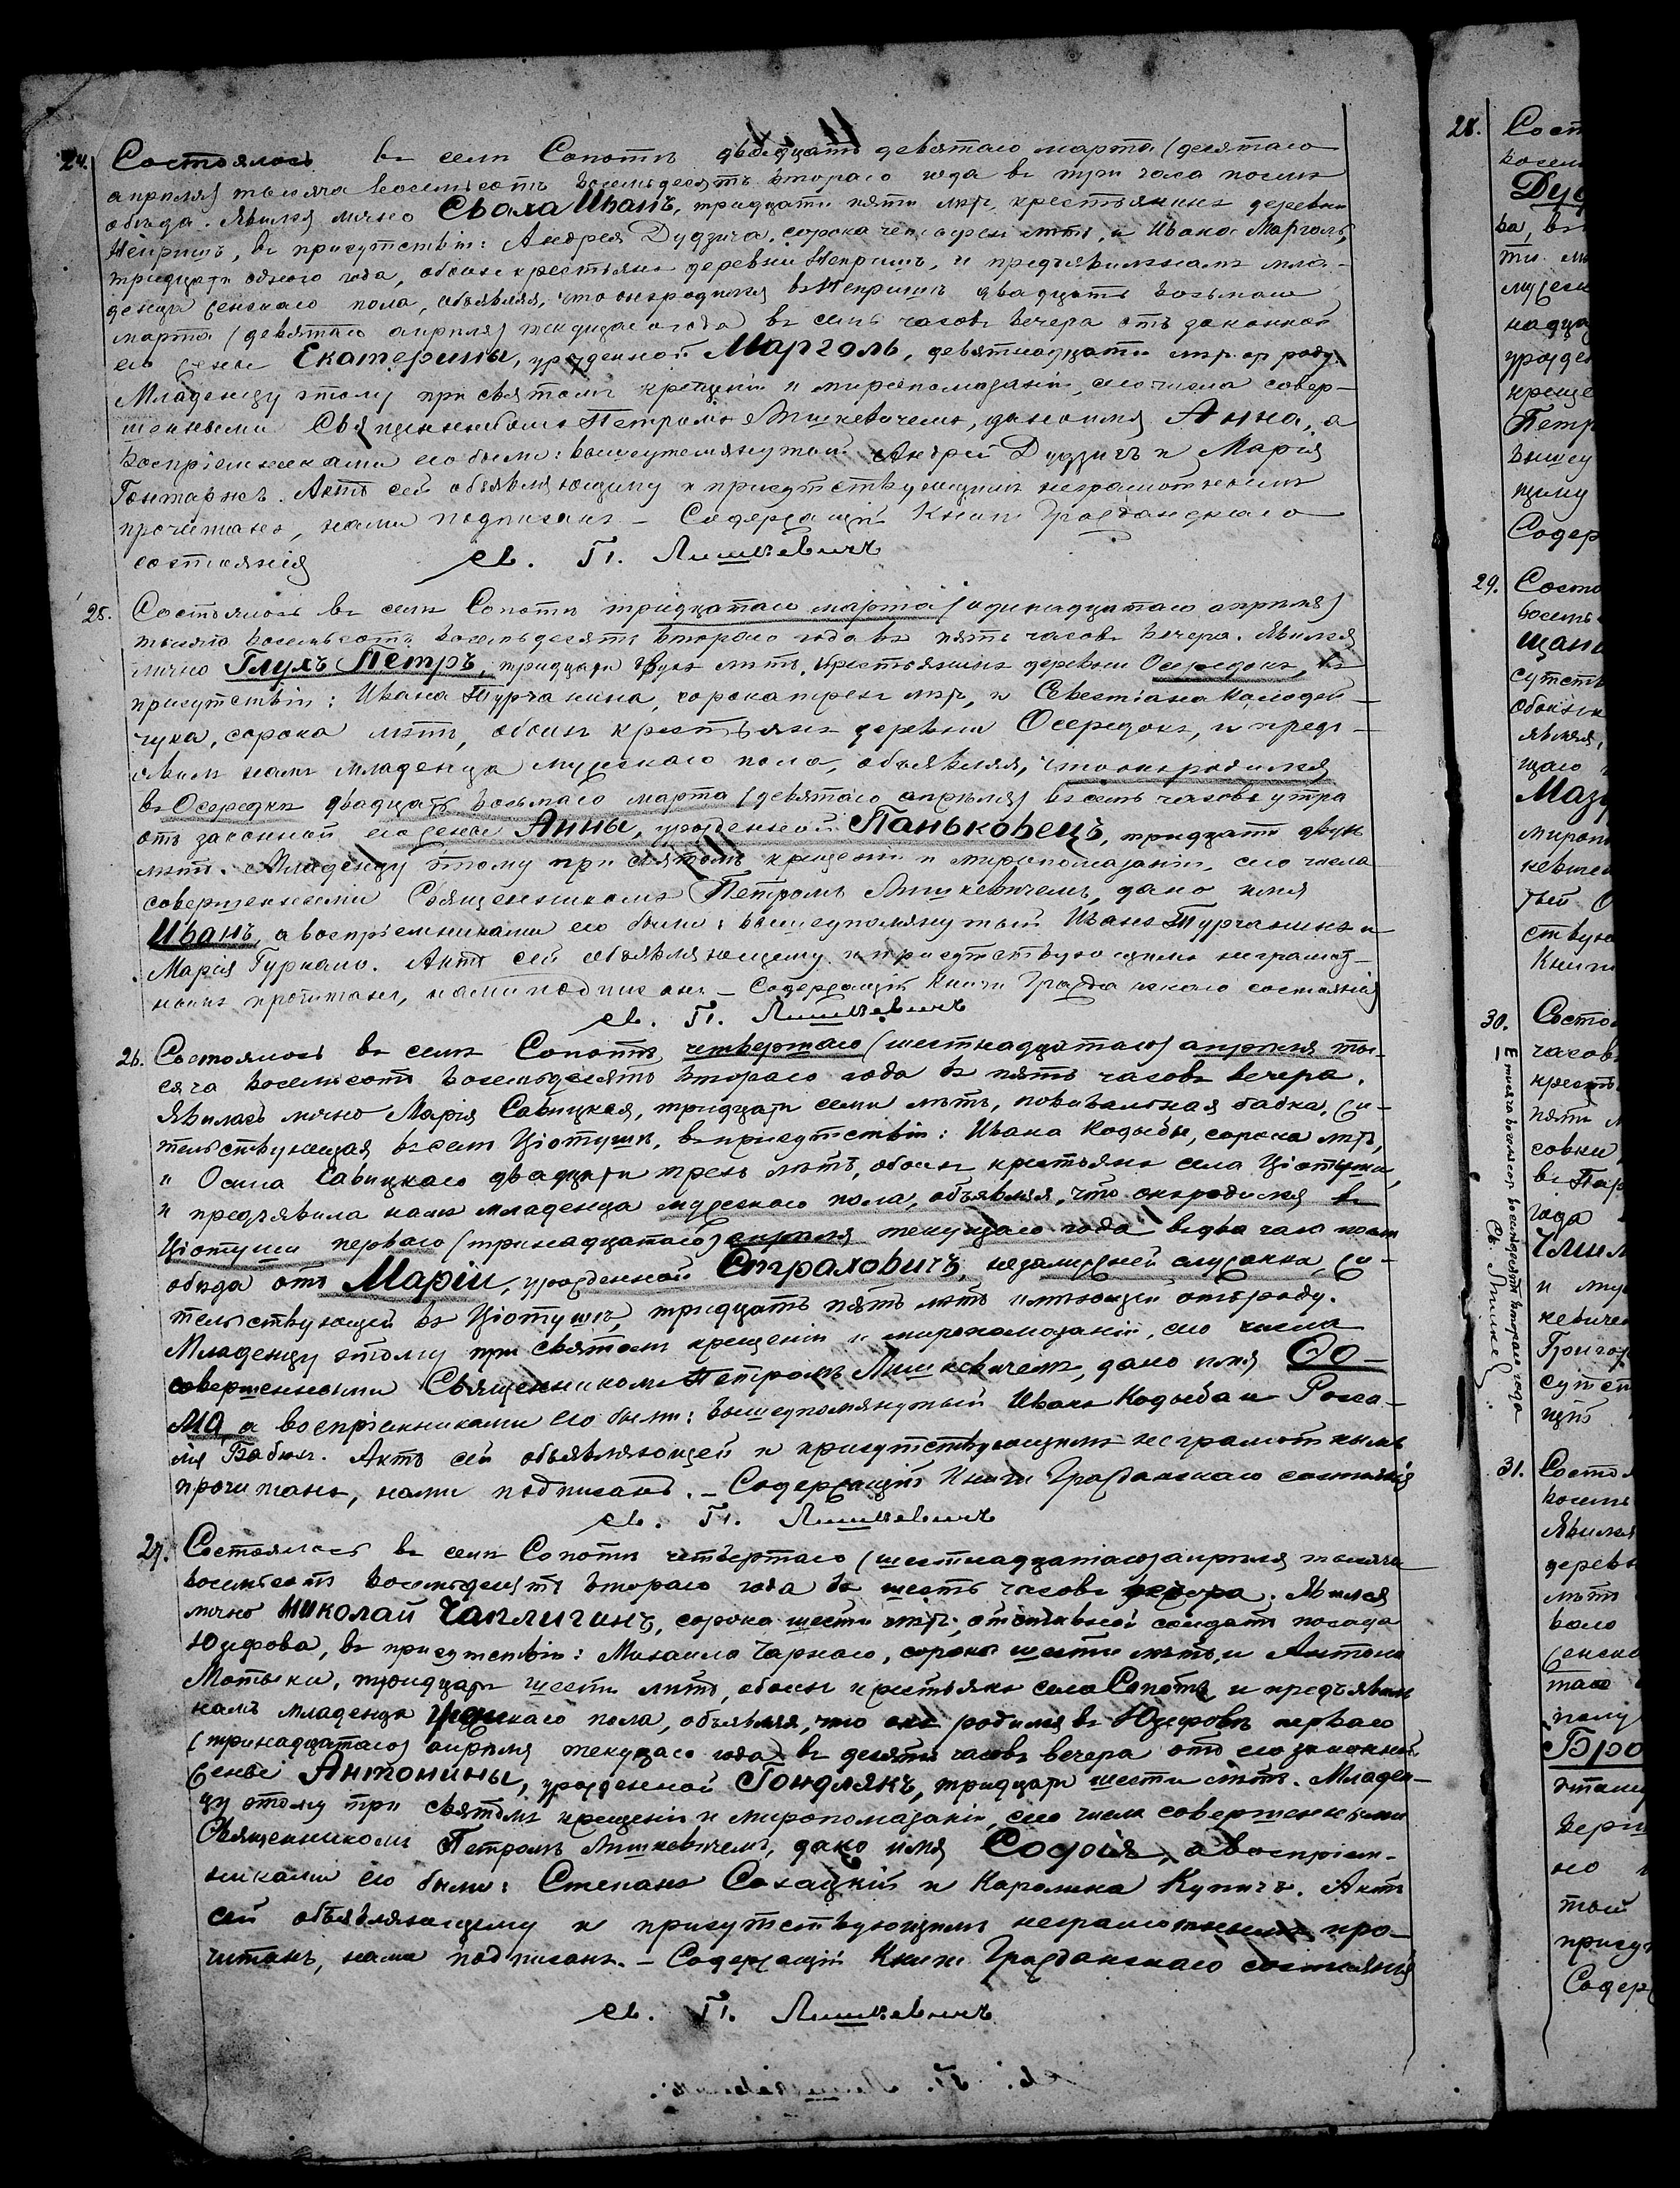 24. Состоялось въ селѣ Сопотѣ двадцать девятаго марта (десятаго
апрѣля) тысяча восемьсотъ восемьдесятъ втораго года въ три часа послѣ
обѣда. Явился лично Свала Иванъ, тридцати пяти лѣтъ, крестьянинъ деревни
Непришъ, въ присутствіи: Андрея Дудзича, сорока четырехъ лѣтъ, и Ивана Марголь,
тридцати одного года, обоихъ крестьянъ деревни Непришъ, и предъявилъ намъ мла-
денца женскаго пола, объявляя, что онъ родился въ Непришѣ двадцать восьмаго
марта (девятаго апрѣля) текущаго года въ семь часовъ вечера отъ законной
его жены Екатерины, урожденной Марголь, девятнадцати лѣтъ отъ роду.
Младенцу этому при святомъ крещеніи и миропомазаніи, сего числа совер-
шенными Священникомъ Петромъ Лишкевичемъ, дано имя Анна, а
воспріемниками его были: вышеупомянутый Андрей Дудзичъ и Марія
Гонтаржъ. Актъ сей объявляющему и присутствующимъ неграмотнымъ
прочитанъ, нами подписанъ – Содержащій Книги Гражданскаго
состоянія св. П. Лишкевичъ
25. Состоялось въ селѣ Сопотѣ тридцатаго марта (одинадцатаго апрѣля)
тысяча восемьсотъ восемьдесятъ втораго года въ пять часовъ вечера. Явился
лично Глухъ Петръ, тридцати двухъ лѣтъ, крестьянинъ деревни Осередокъ, въ
присутствіи: Ивана Турчанина, сорока трехъ лѣтъ, и Севестіана Колодей-
чука, сорока лѣтъ, обоихъ крестьянъ деревни Осередокъ, и предъ-
явилъ намъ младенца мужескаго пола, объявляя, что онъ родился
въ Осередкѣ двадцать восьмаго марта (девятаго апрѣля) въ семь часовъ утра
отъ законной его жены Анны, урожденной Паньковецъ, тридцати двухъ
лѣтъ. Младенцу этому при святомъ крещеніи и миропомазаніи, сего числа
совершенными Священникомъ Петромъ Лишкевичемъ, дано имя
Иванъ, а воспріемниками его были: вышеупомянутый Иванъ Турчанинъ и
Марія Гуркало. Актъ сей объявляющему и присутствующимъ неграмот-
нымъ прочитанъ, нами подписанъ – Содержащій Книги Гражданскаго состоянія
св. П. Лишкевичъ
26. Состоялось въ селѣ Сопотѣ четвертаго (шестнадцатаго) апрѣля ты-
сяча восемьсотъ восемьдесятъ втораго года въ пять часовъ вечера.
Явилась лично Марія Савицкая, тридцати семи лѣтъ, повивальная бабка, жи-
тельствующая въ селѣ Ціотушѣ, въ присутствіи: Ивана Кодыбы, сорока лѣтъ,
и Осипа Савицкаго двадцати трехъ лѣтъ, обоихъ крестьянъ села Ціотуши,
и предъявила намъ младенца мужескаго пола, объявляя, что онъ родился въ
Ціотуши перваго (тринадцатаго) апрѣля текущаго года въ два часа послѣ
обѣда отъ Маріи, урожденной Страховичъ, незамужней служанки, жи-
тельствующей въ Ціотушѣ, тридцать пять лѣтъ имѣющей отъ роду.
Младенцу этому при святомъ крещеніи и миропомазаніи, сего числа
совершенными Священникомъ Петромъ Лишкевичемъ, дано имя Ѳо-
ма, а воспріемниками его были: вышеупомянутый Иванъ Кодыба и Роза-
лія Бабюк. Актъ сей объявляющей и присутствующимъ неграмотнымъ
прочитанъ, нами подписанъ. – Содержащій Книги Гражданскаго состоянія
св. П. Лишкевичъ
27. Состоялось въ селѣ Сопотѣ четвертаго (шестнадцатаго) апрѣля тысяча
восемьсотъ восемьдесятъ втораго года въ шесть часовъ вечера. Явился
лично Николай Чаплигинъ, сорока шести лѣтъ, отставной солдатъ посада
Юзефова, въ присутствіи: Михаила Чарнаго, сорока шести лѣтъ, и Антона
Мотыки, тридцати шести лѣтъ, обоихъ крестьянъ села Сопота, и предъявилъ
намъ младенца женскаго пола, объявляя, что онъ родился въ Юзефовѣ перваго
(тринадцатаго) апрѣля текущаго года въ десять часовъ вечера отъ его законной
жены Антонины, урожденной Гондлякъ, тридцати шести лѣтъ. Младен-
цу этому при святомъ крещеніи и миропомазаніи, сего числа совершенными
Священникомъ Петромъ Лишкевичемъ, дано имя Софія, а воспріем-
никами его были: Степанъ Сахацкій и Каролина Купичъ. Актъ
сей объявляющему и присутствующимъ неграмотнымъ про-
читанъ, нами подписанъ. – Содержащій Книги Гражданскаго состоянія
св. П. Лишкевичъ
28. Сост
восем
Дуд
ва, въ
ти лѣ
мужеск
надца
урожден
креще
Петр
вышеу
щему
Содер
29. Состо
восемь
щани
сутств
обоихъ
являя,
щаго
Маз
миропо
кевичем
тый О
ствую
Книги
30. Состо
часов
кресть
пяти л
совки
въ Пар
года
Чмил
и ми
кевичем
Григор
сутст
щій
Е тысяча восемьсотъ восемьдесятъ втораго года
Св. Лишке
31. Состо
восемь
Явился
дерев
лѣтъ
вало
женска
таго
полу
Бро
этому
верш
но
тый
присут
Содерж